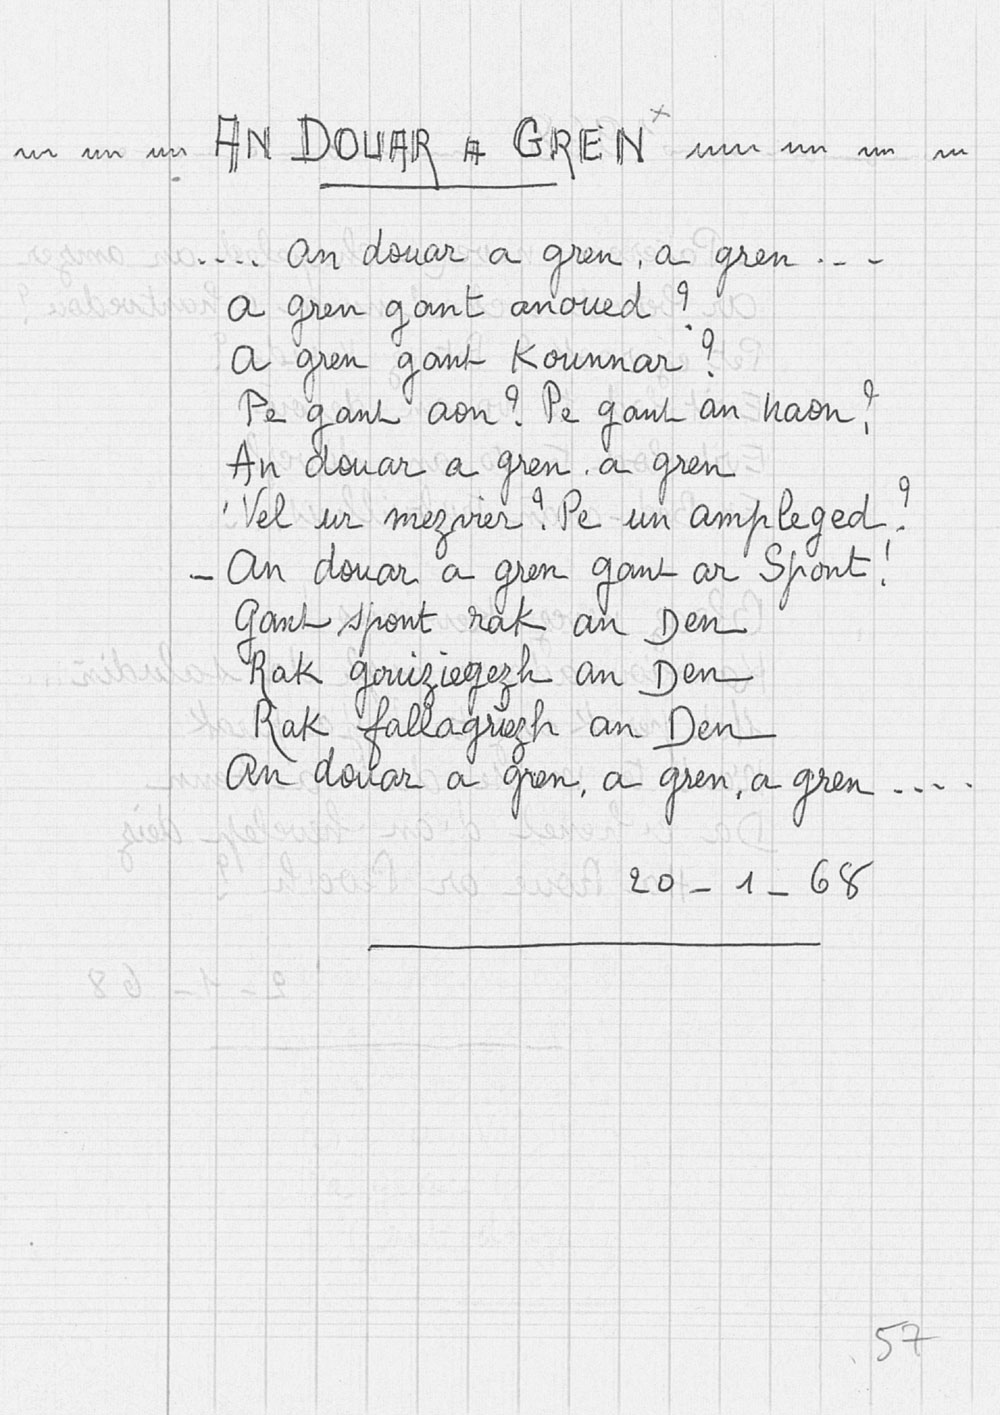 AN DOUAR A GREN x
.... An douar a gren, a gren ...
A gren gant anoued ?
A gren gant Kounnar ?
Pe gant aon ? Pe gant an naon ?
An douar a gren, a gren
'Vel ur mezvier ? Pe un ampleged ?
– An douar a gren gant ar Spont !
Gant spont rak an Den
Rak gouiziegezh an Den
Rak fallagriezh an Den
An douar a gren, a gren, a gren ....
20 – 1 – 68
57